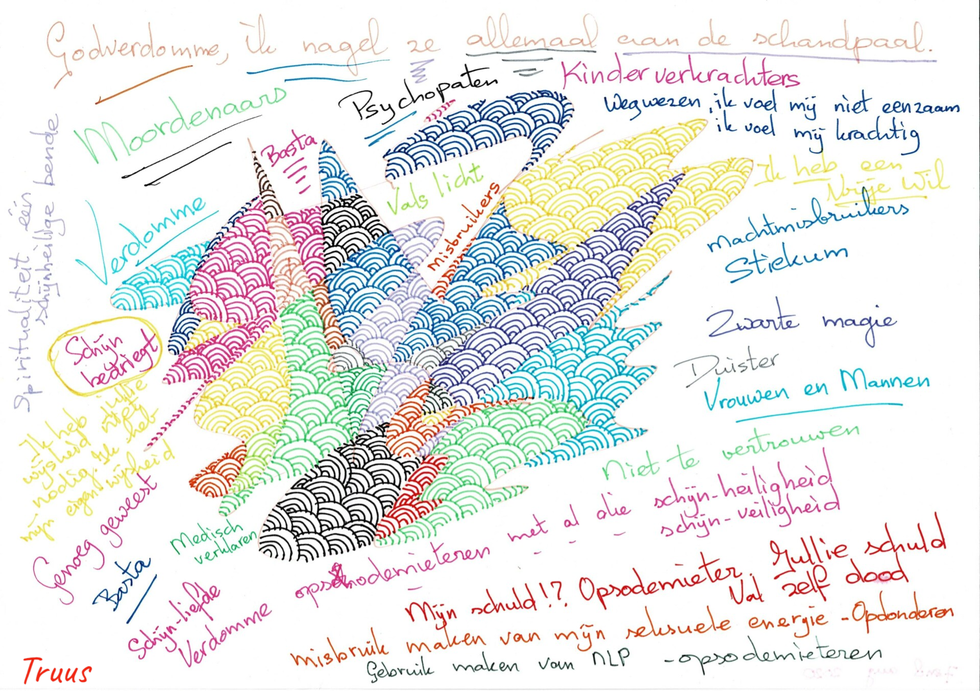 Godverdomme, ik nagel ze allemaal aan de schandpaal.
Moordenaars
Psychopaten
Kinderverkrachters
Basta
wegwezen, ik voel mij niet eenzaam
ik voel mij krachtig
Vals licht
Misbruikers
Ik heb een
Vrije Wil
Verdomme
machtmisbruikers
Stiekum
Spiritualiteit één
schijnheilige bende
Schijn
bedriegt
Zwarte magie
Duister
Vrouwen en Mannen
Ik heb
wijsheid
nodig. Ik heb
mijn eigen wijsheid
Niet te vertrouwen
Genoeg geweest
Medisch
verklaren
Basta
opsodemieteren met al die schijn-heiligheid
schijn-veiligheid
Schijn-liefde
Verdomme
Mijn schuld!? Opsodemieter. Jullie schuld
Val zelf dood
misbruik maken van mijn seksuele energie - Opdonderen
Gebruik maken van NLP - opsodemieteren
Truus